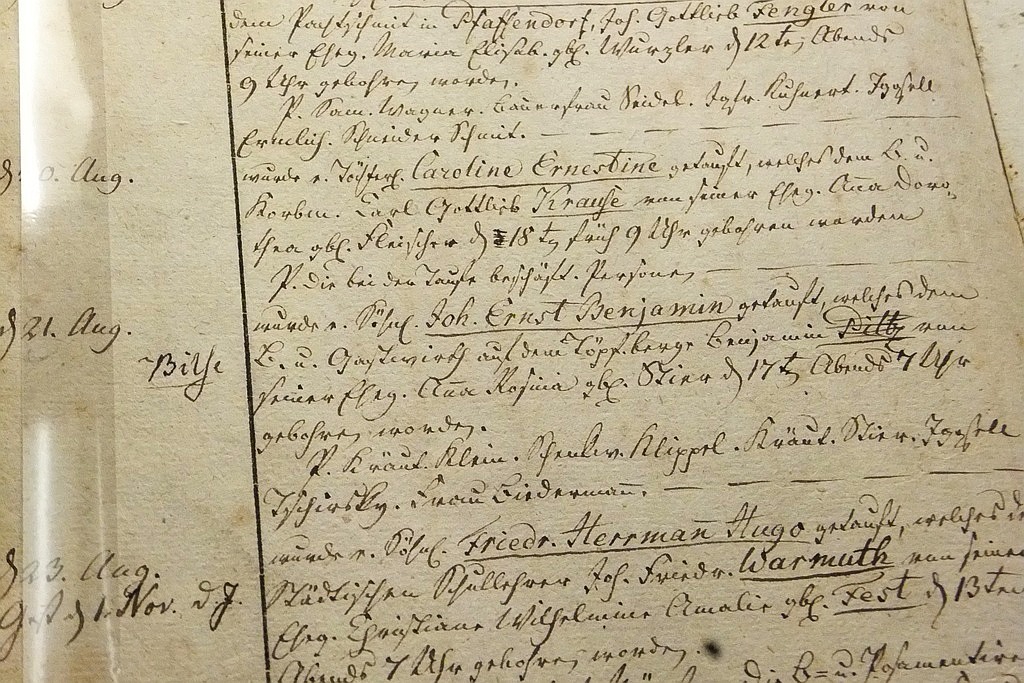 dem Pachtschmit in Pfaffendorf, Joh. Gottlieb Fengler von
seiner Eheg. Maria Elisab. gb. Wurgler d 12ten Abends
9 Uhr gebohren worden.
P. Sam. Wagner. Bauerfrau Seidel. Jgfr. Kuhnert. Jggsell
Ermlich. Schneider Schmit.
d. 0. Aug.
wurde e. Töchterl. Caroline Ernestine getauft, welches dem B. u.
Korbm. Carl Gottlieb Krause von seiner Eheg. Anna Doro-
thea gb. Fleischer d 18 t früh 9 Uhr gebohren worden
P. die bei der Taufe beschäft. Personen
d 21. Aug.
wurde e. Söhnl. Joh. Ernst Benjamin getauft, welches dem
Bilse
B. u. Gastwirth auf dem Töpf.berge Benjamin von
seiner Eheg. Anna Rosina gb. Stier d 17t Abends 7 Uhr
gebohren worden.
P. Kräut. Klein. Schenkw. Klippel. Kräut. Stier. Jggsell
Tschirsky. Frau Biedermann.
d 23. Aug.
wurde e. Söhnl. Friedr. Herrmann Hugo getauft, welches de
Gest d 1. Nov. d. J.
Städtischen Schullehrer Joh. Friedr. Warmuth von seiner
Eheg. Christiane Wilhelmine Amalie gb. Fest d 13ten
Abends 7 Uhr gebohren worden.
die B= u. Posamentire